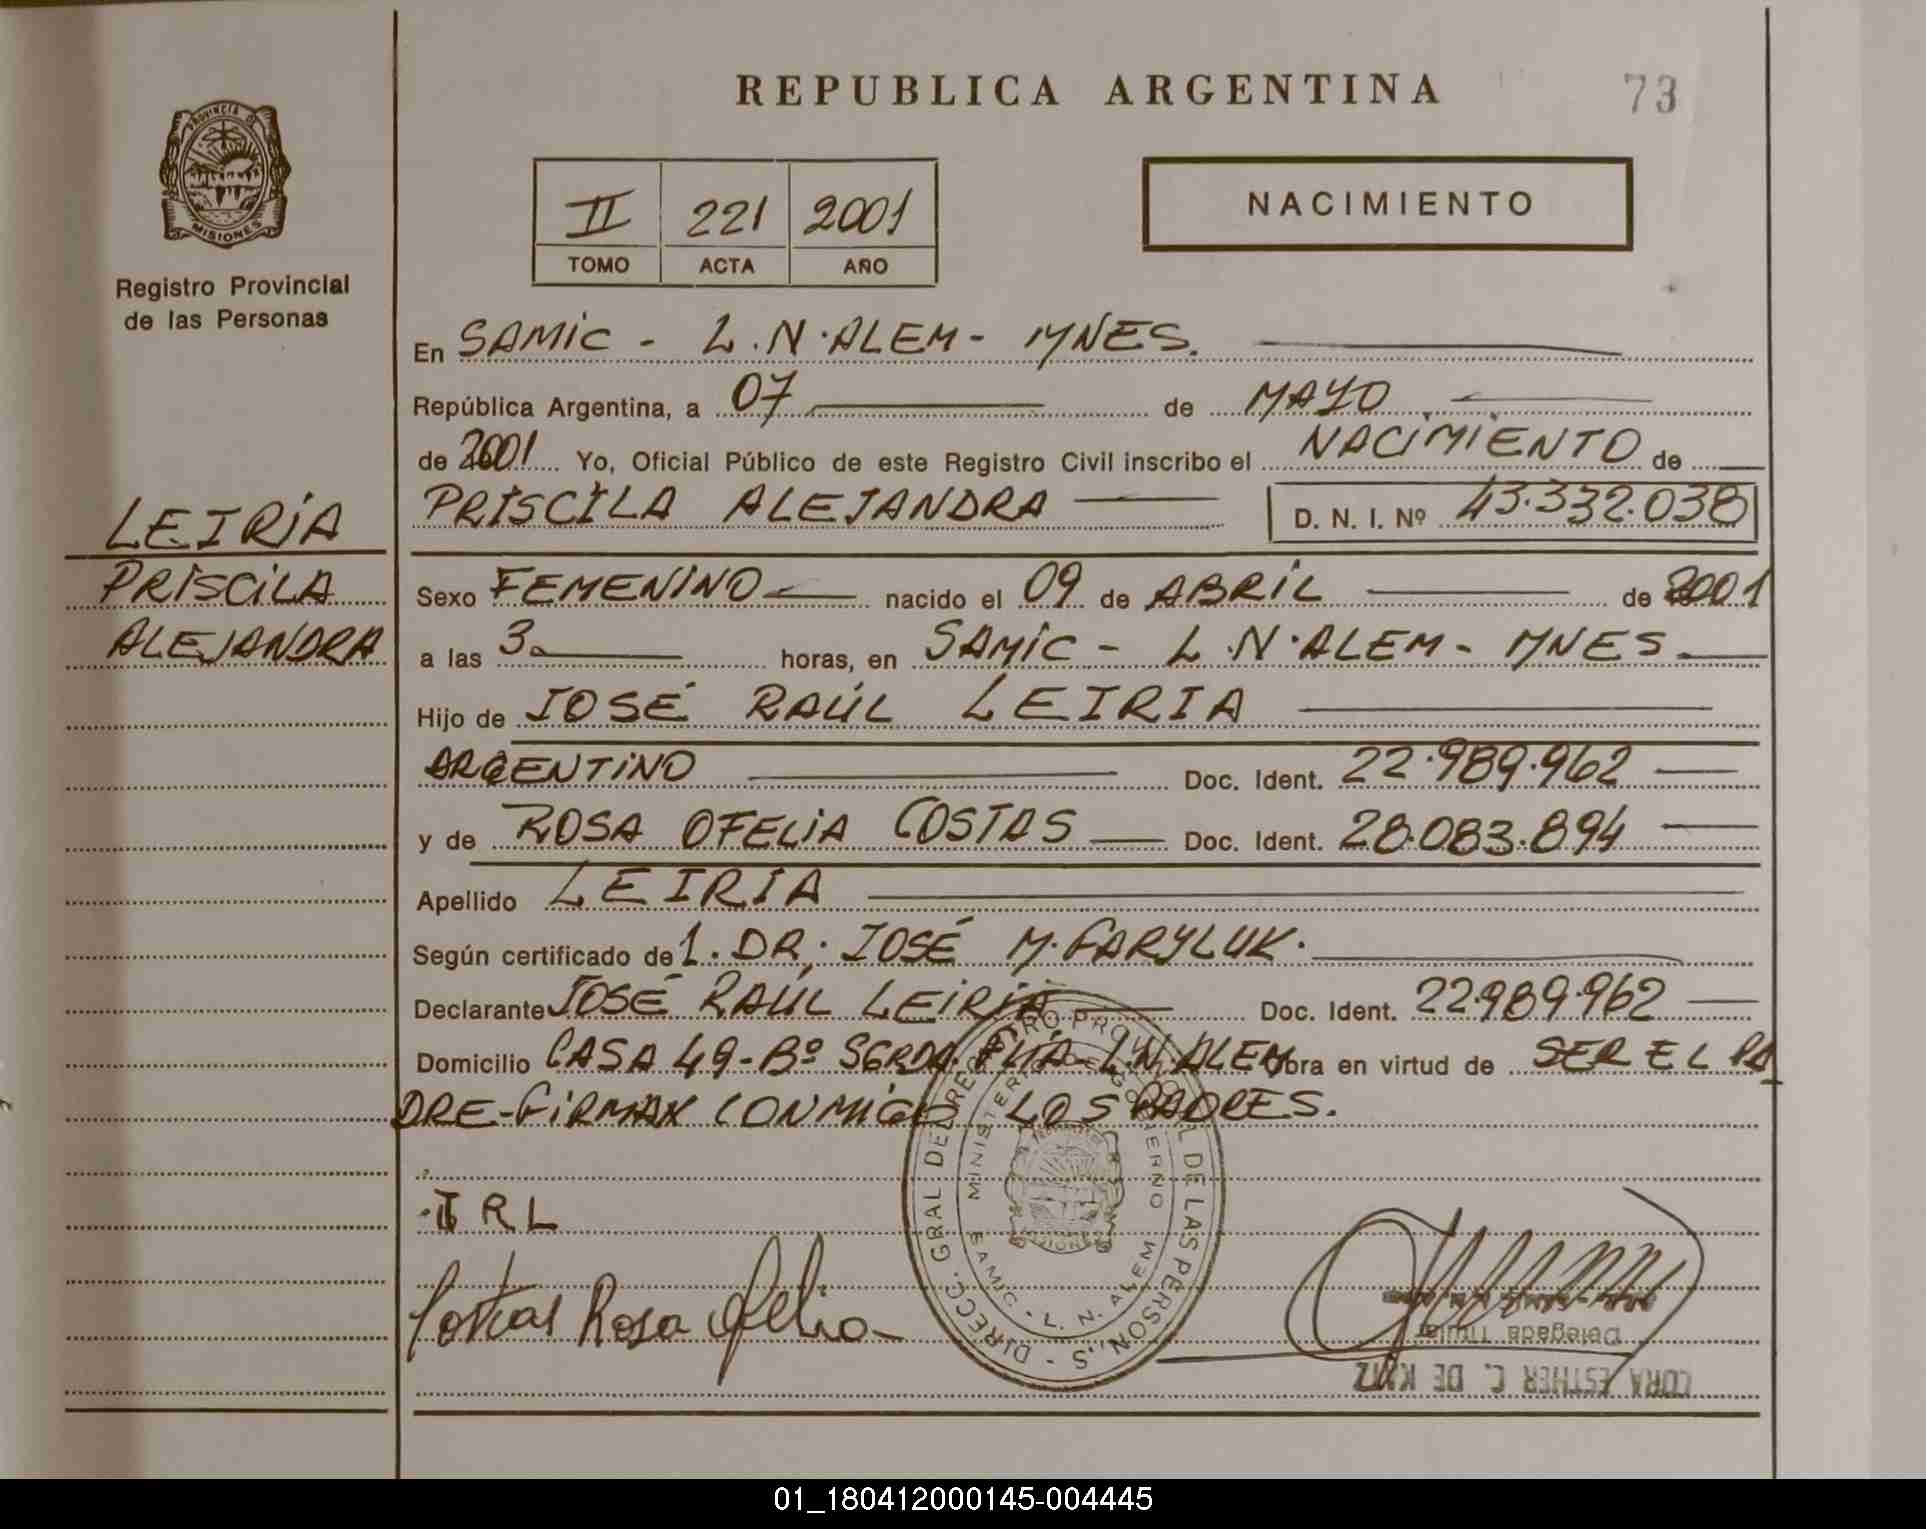 REPUBLICA ARGENTINA
73
PROVINCIA DE
MISIONES
Registro Provincial
de las Personas
II 221 2001
TOMO ACTA AÑO
NACIMIENTO
En SAMIC - L.N.ALEM - MNES.
República Argentina, a 07 de MAYO
de 2001 Yo, Oficial Público de este Registro Civil inscribo el NACIMIENTO de
PRISCILA ALEJANDRA D. N. I. Nº 43.332.038
LEIRIA
PRISCILA
ALEJANDRA
Sexo FEMENINO nacido el 09 de ABRIL de 2001
a las 3 horas, en SAMIC - L.N.ALEM - MNES.
Hijo de JOSÉ RAÚL LEIRIA
ARGENTINO Doc. Ident. 22.989.962
y de ROSA OFELIA COSTAS Doc. Ident. 28.083.894
Apellido LEIRIA
Según certificado de 1. DR. JOSÉ M. FARYLUK.
Declarante JOSÉ RAÚL LEIRIA Doc. Ident. 22.989.962
Domicilio CASA 49-Bº SGRDA. FLIA-L.N.ALEM obra en virtud de SER EL PA
DRE-FIRMAX CONMIGO LOS PADRES.
DIRECC. GRAL DEL REGISTRO PROVINCIAL DE LAS PERSONAS
MINISTERIO DE GOBIERNO
SAMIC - L. N. ALEM
JRL
Costas Rosa Ofelia
Delegada Titular
CORA ESTHER C. DE KATZ
01_180412000145-004445